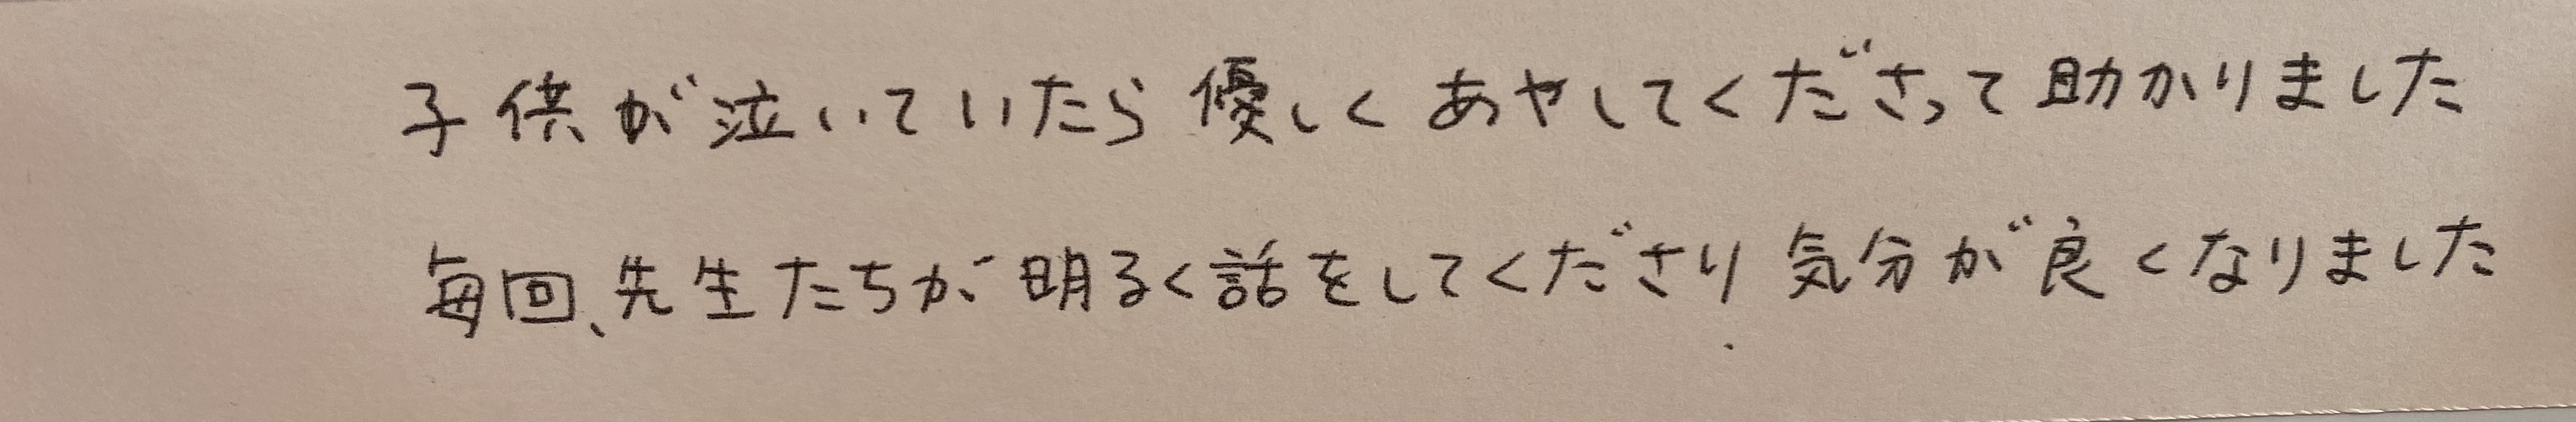 子供が泣いていたら優しくあやしてくださって助かりました
毎回、先生たちが明るく話をしてくださり気分が良くなりました